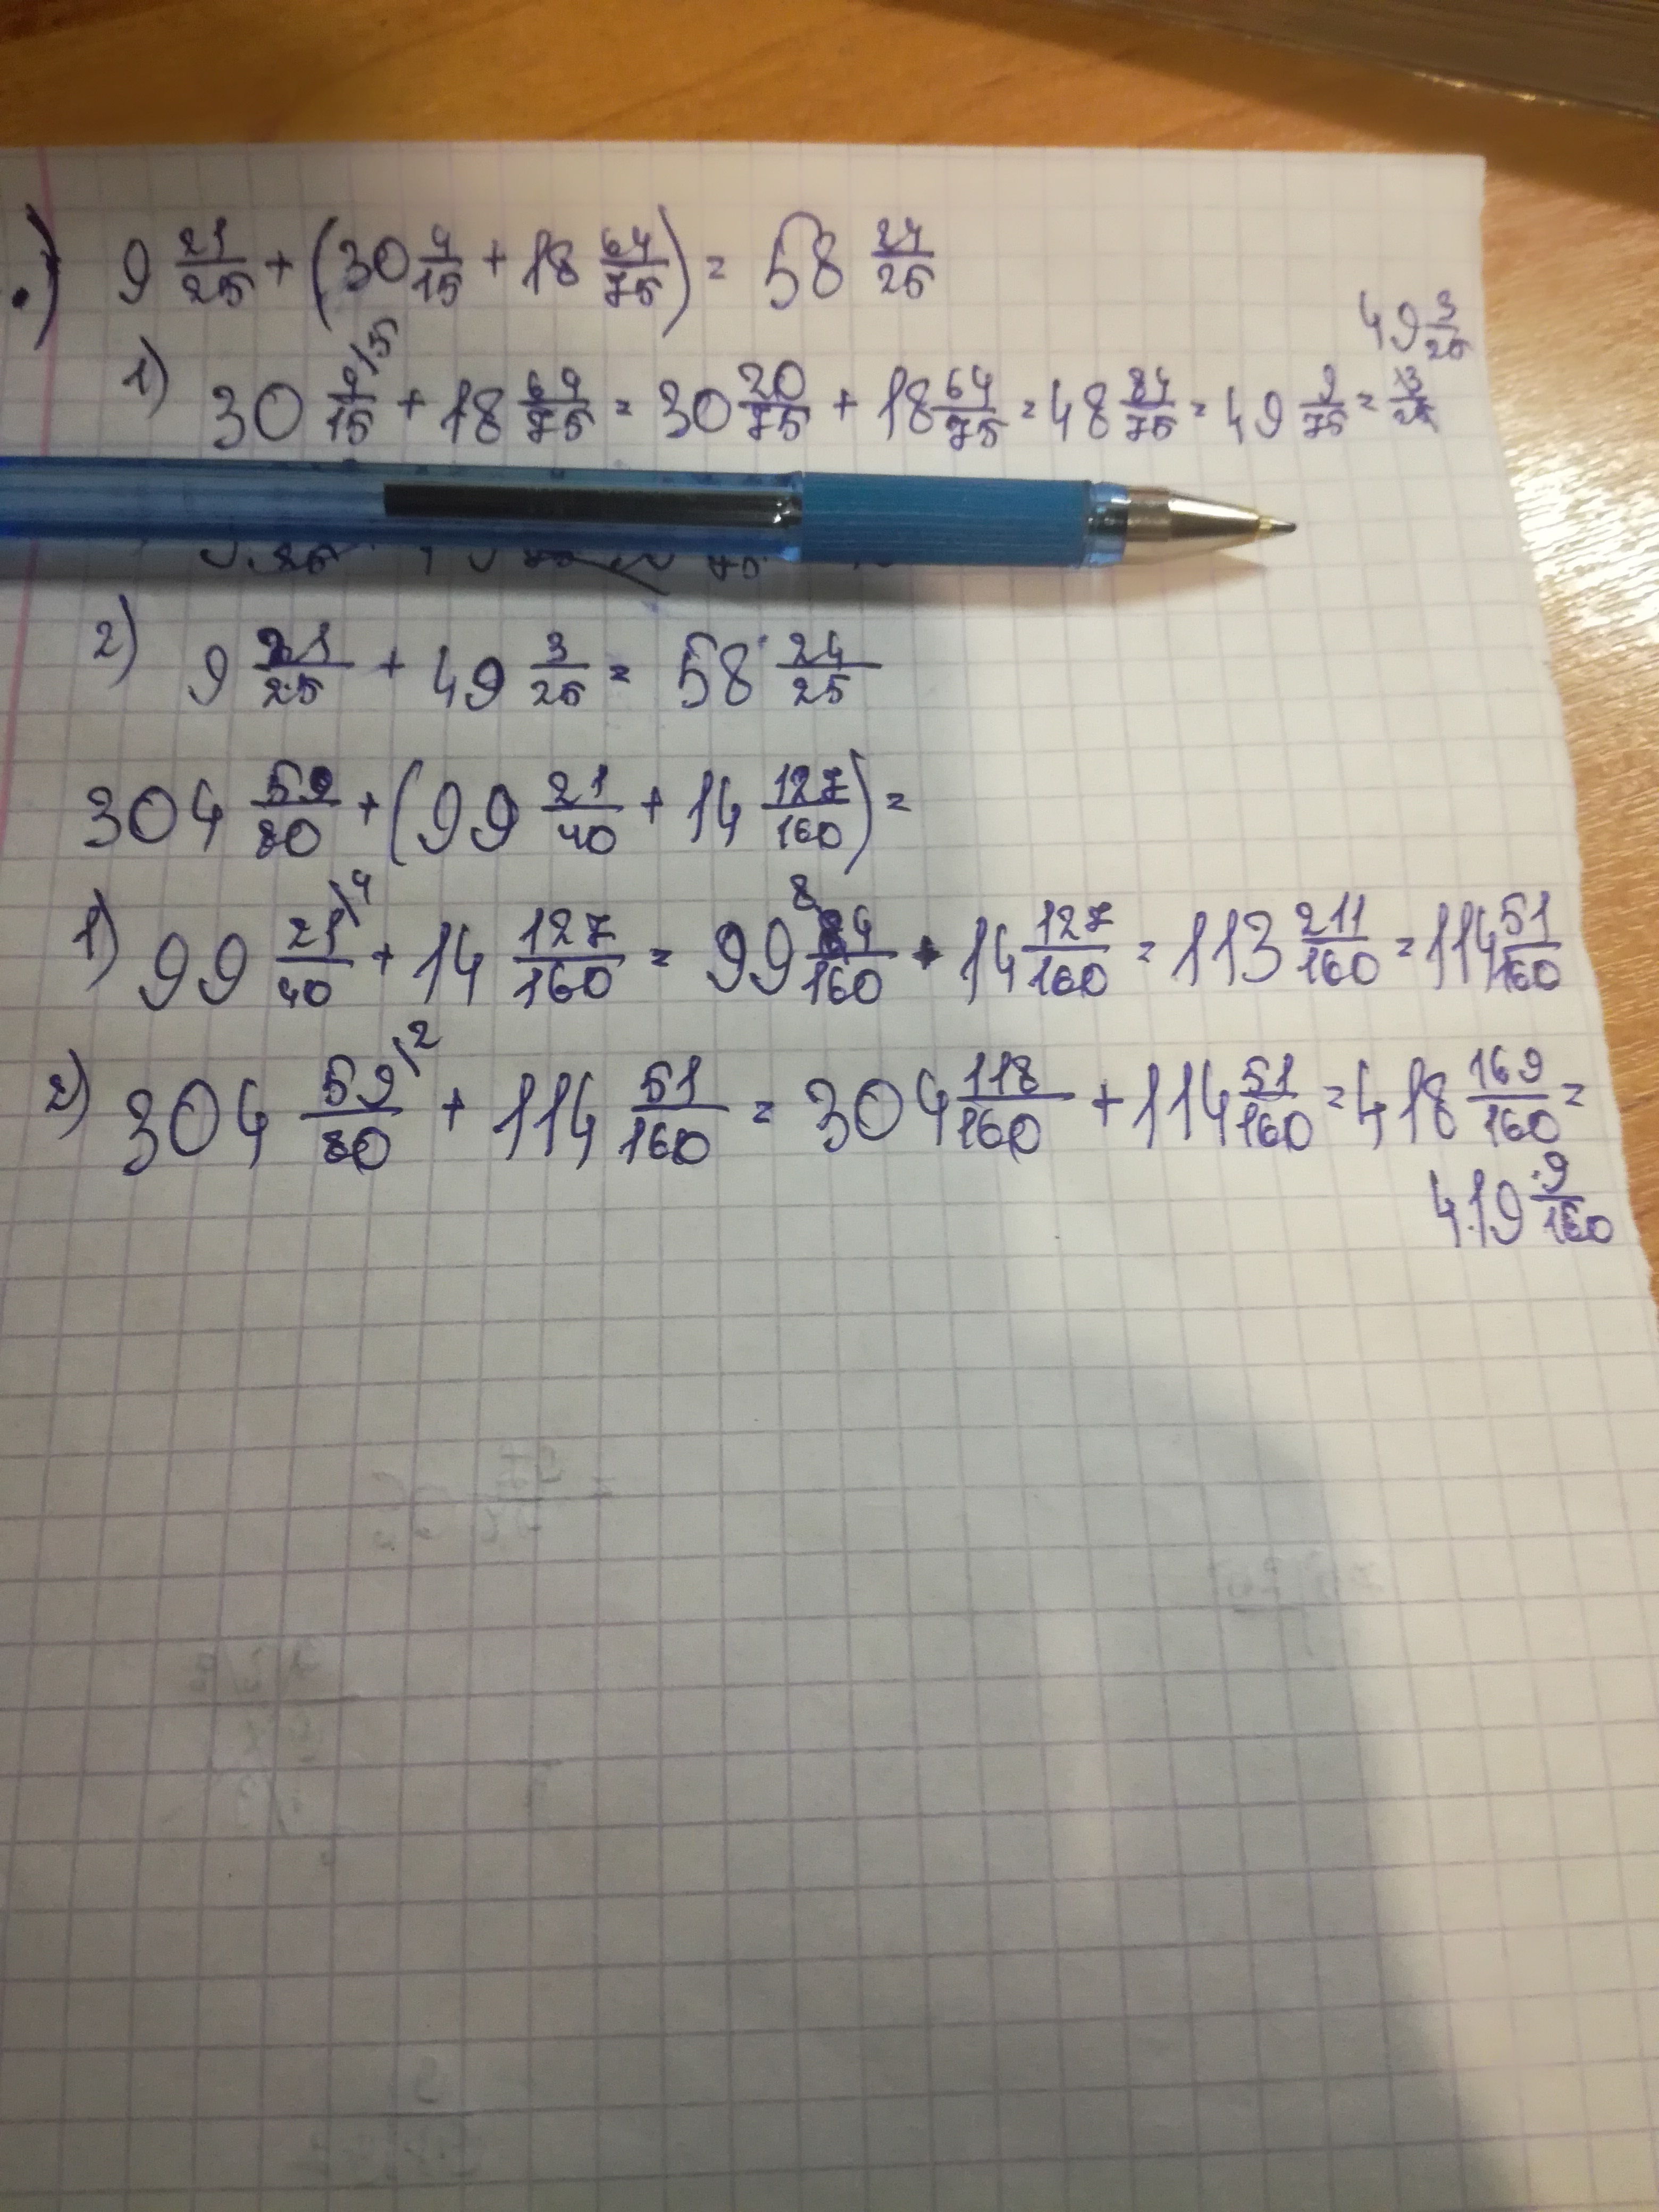 .) 9 21/25 + (30 4/15 + 18 64/75) = 58 24/25
49 3/25
1) 30 4/15 \5 + 18 64/75 = 30 20/75 + 18 64/75 = 48 84/75 = 49 9/75 = 3/25
2) 9 21/25 + 49 3/25 = 58 24/25
304 59/80 + (99 21/40 + 14 127/160) =
1) 99 21/40 \4 + 14 127/160 = 99 84/160 + 14 127/160 = 113 211/160 = 114 51/160
2) 304 59/80 \2 + 114 51/160 = 304 118/160 + 114 51/160 = 418 169/160 =
419 9/160